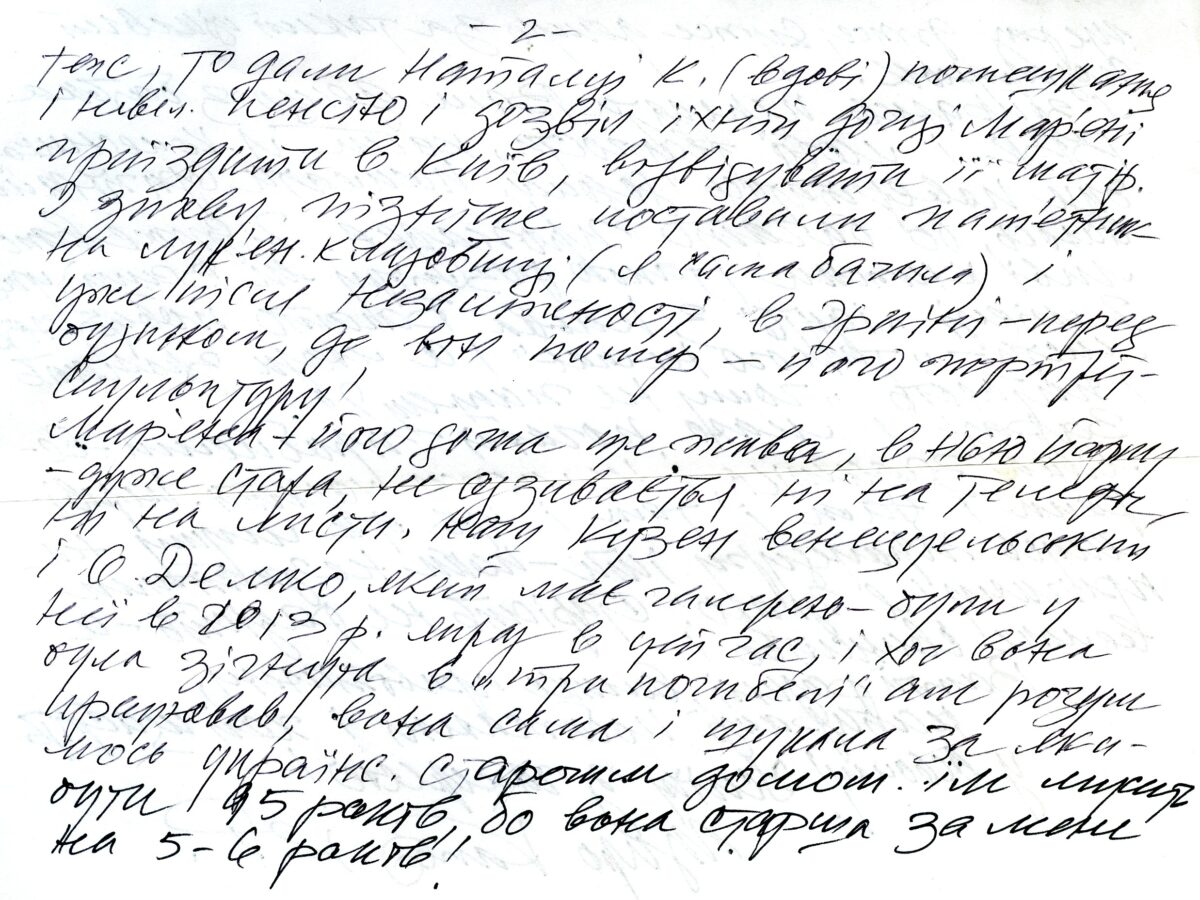 - 2 -
теж, то дали Наталці К. (вдові) помешкання
і невел. пенсію і дозвіл їхній доці Мар'яні
приїздити в Київ, відвідувати її матір.
І знову пізніше поставили пам'ятник
на Лук'ян. кладовищі (я сама бачила) і
уже після Незалежності, в Ірпіні - перед
будинком, де він помер - його портрет-
скульптуру!
Мар'яна - його дочка ще жива, в Нью Йорку
- дуже стара, не одзивається ні на телефон,
ні на листи. Кузен венецуельський
і О. Демко, який має галерею - були у
неї в 2013 р. якраз в цей час, і хоч вона
була зігнута в "три погибелі" але розум
працював, вона сама і шукала за яки-
мось україніс. старечим домом. Їй
бути 95 років, бо вона старша за мене
на 5-6 років!